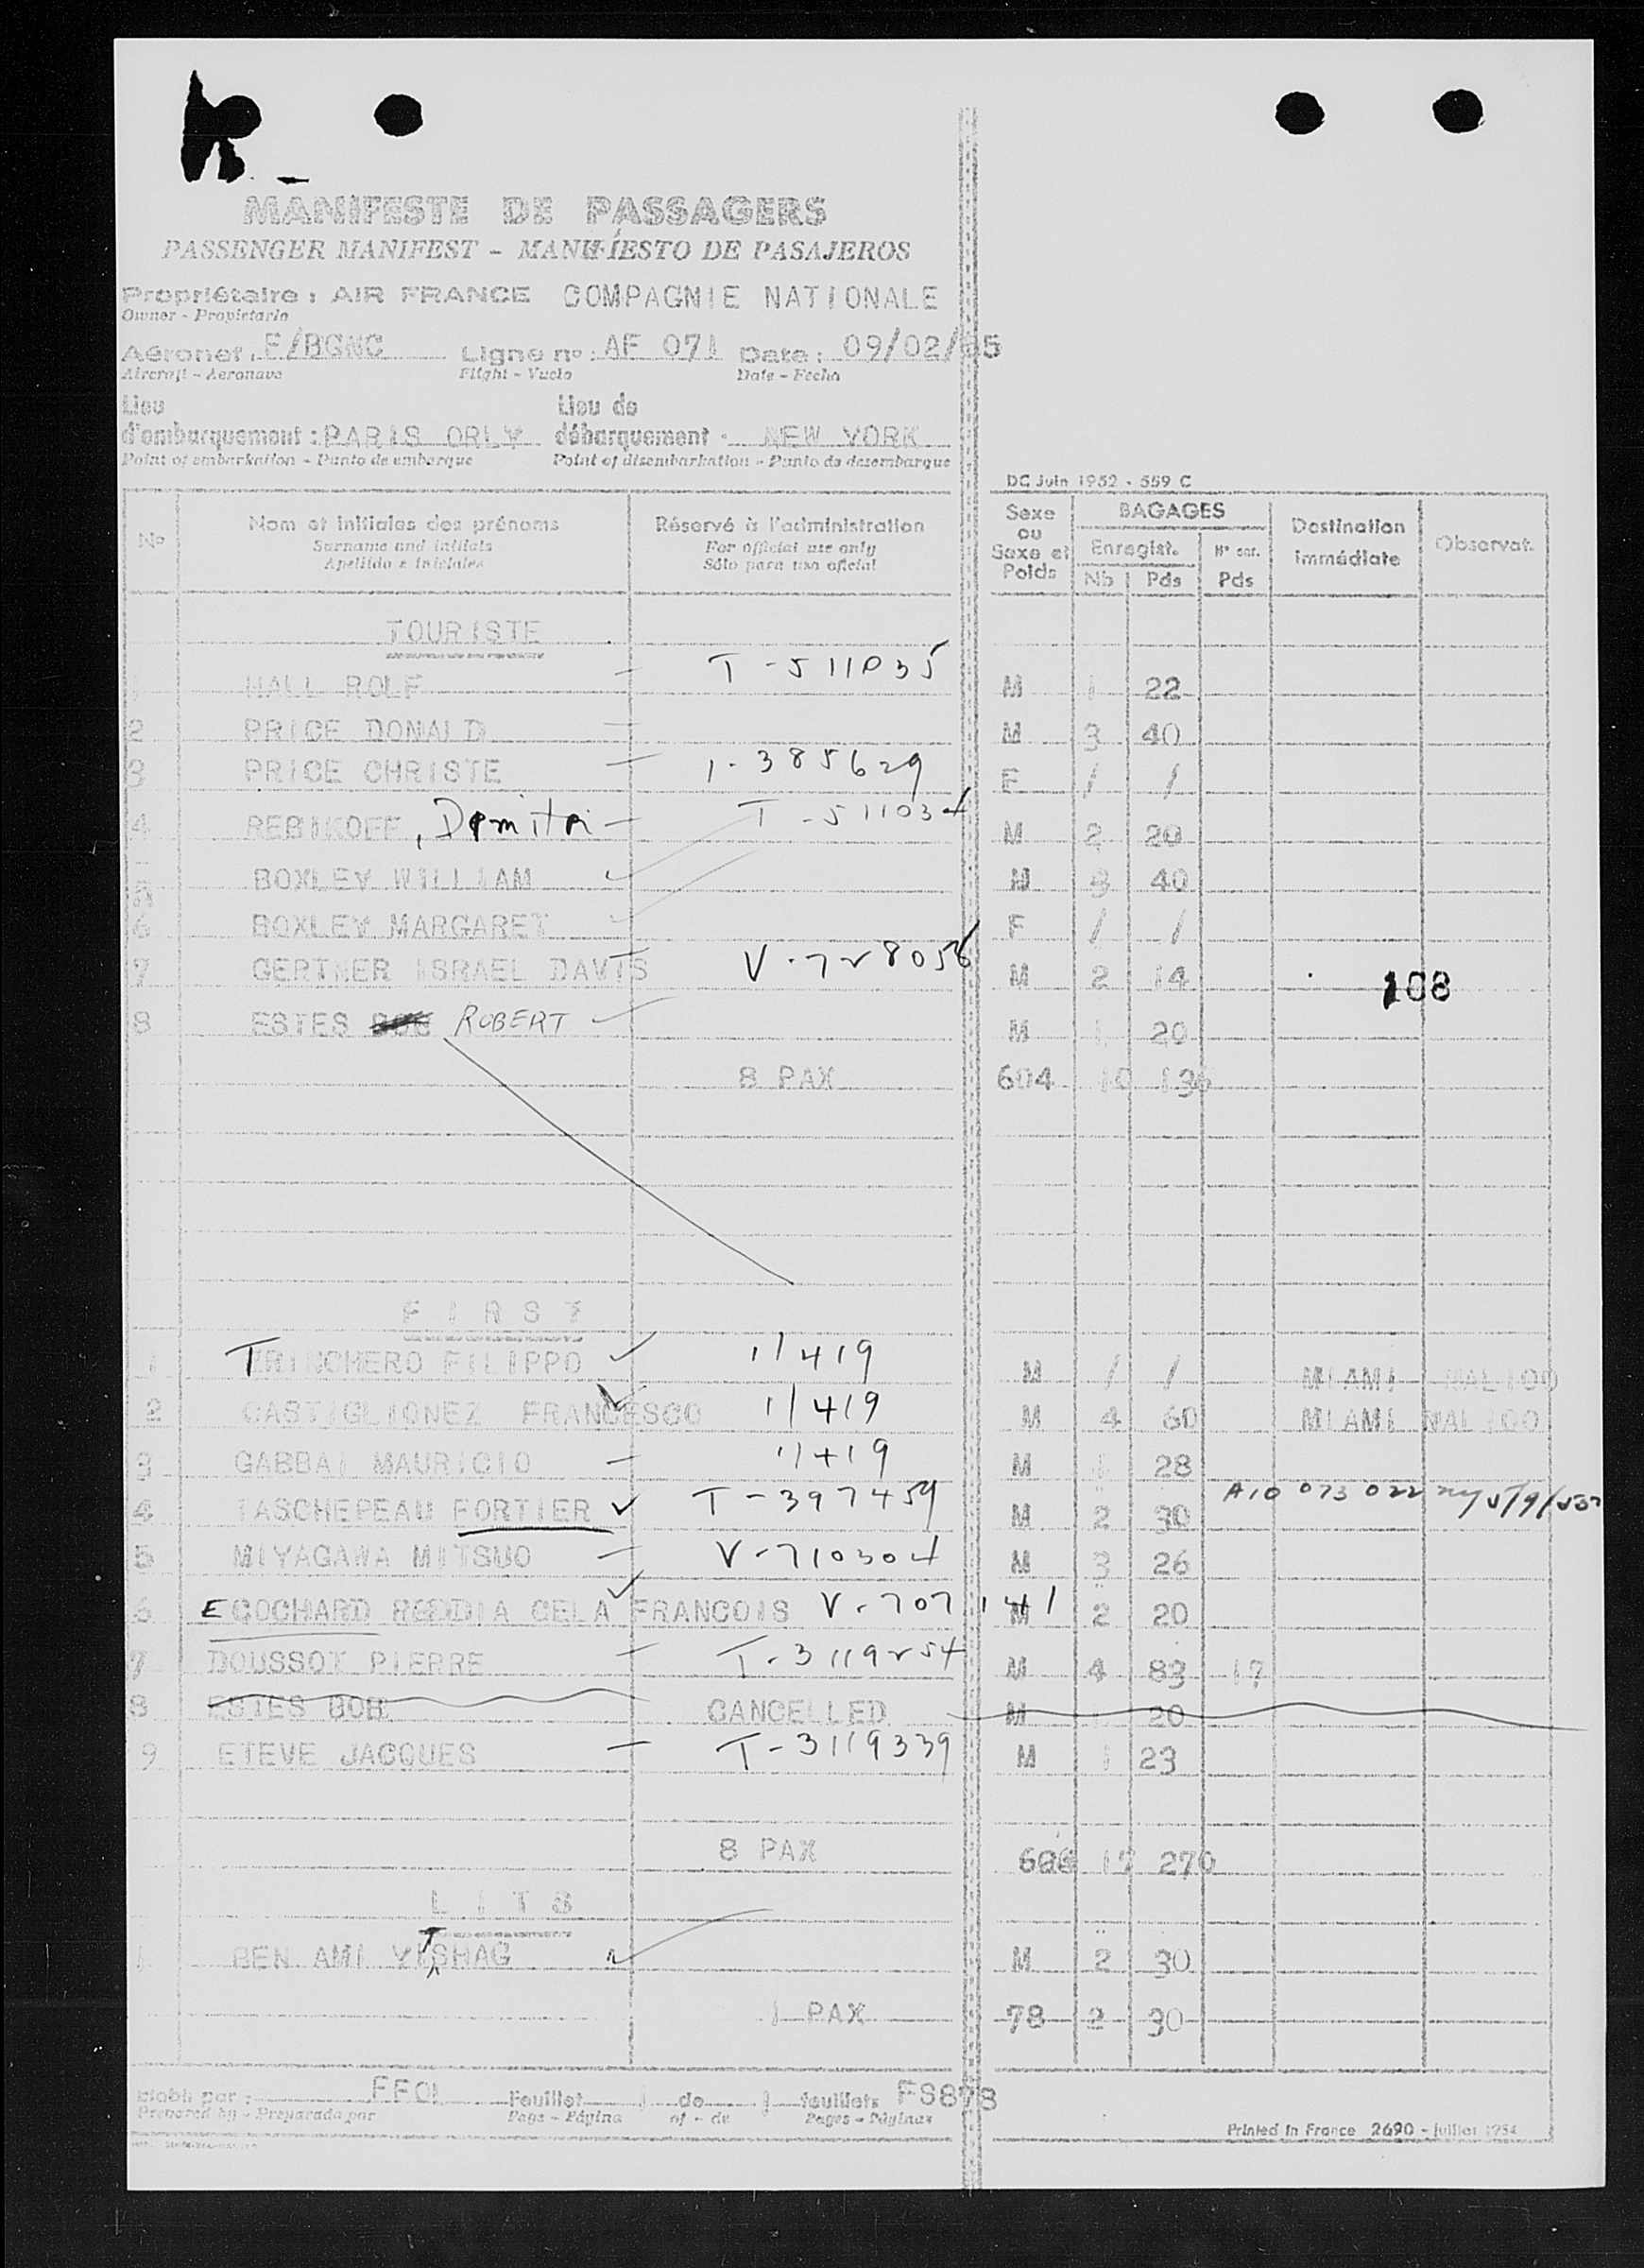 MANIFESTE DE PASSAGERS
PASSENGER MANIFEST - MANIFÍESTO DE PASAJEROS
Propriétaire : AIR FRANCE COMPAGNIE NATIONALE
Owner - Propietario
Aéronef : F/BGNC Ligne nº : AF 071 Date : 09/02/55
Aircraft - Aeronave Flight - Vuelo Date - Fecha
Lieu Lieu de
d'embarquement : PARIS ORLY débarquement : NEW YORK
Point of embarkation - Punto de embarque Point of disembarkation - Punto de desembarque
DC Juin 1952 - 559 C
Nº Nom et initiales des prénoms Réservé à l'administration Sexe ou Sexe et Poids BAGAGES Destination immédiate Observat.
Surname and initials For official use only Enregist. Nº enr.
Apellido e iniciales Sólo para uso oficial Nb Pds Pds
TOURISTE
1 HALL ROLF — T-511035 M 1 22
2 PRICE DONALD — M 3 40
3 PRICE CHRISTE — 1-385629 F / /
4 REBIKOFF, Dimitri — T-511034 M 2 20
5 BOXLEY WILLIAM ✓ M 3 40
6 BOXLEY MARGARET ✓ F / /
7 GERTNER ISRAEL DAVIS — V-728056 M 2 14 108
8 ESTES BOB ROBERT ✓ M 1 20
8 PAX 604 10 136
FIRST
1 TRINCHERO FILIPPO ✓ 11419 M / / MIAMI NAL 100
2 CASTIGLIONEZ FRANCESCO ✓ 11419 M 4 60 MIAMI NAL 100
3 GABBAI MAURICIO — 11419 M 1 28
4 TASCHEPEAU FORTIER ✓ T-397459 M 2 30 A10 073 022
5 MIYAGAWA MITSUO — V-710304 M 3 26
6 EGOCHARD CELA FRANCOIS ✓ V-707141 M 2 20
7 DOUSSOT PIERRE — T-3119254 M 4 83 17
8 ESTES BOB CANCELLED M 1 20
9 ETEVE JACQUES — T-3119339 M 1 23
8 PAX 17 270
LITS
1 BEN AMI YISHAG ✓ M 2 30
1 PAX 78 2 30
Etabli par : FFOL Feuillet 1 de 1 feuillets FS878
Prepared by - Preparado por Page - Página of - de Pages - Páginas
Printed in France 2690 - juillet 1954